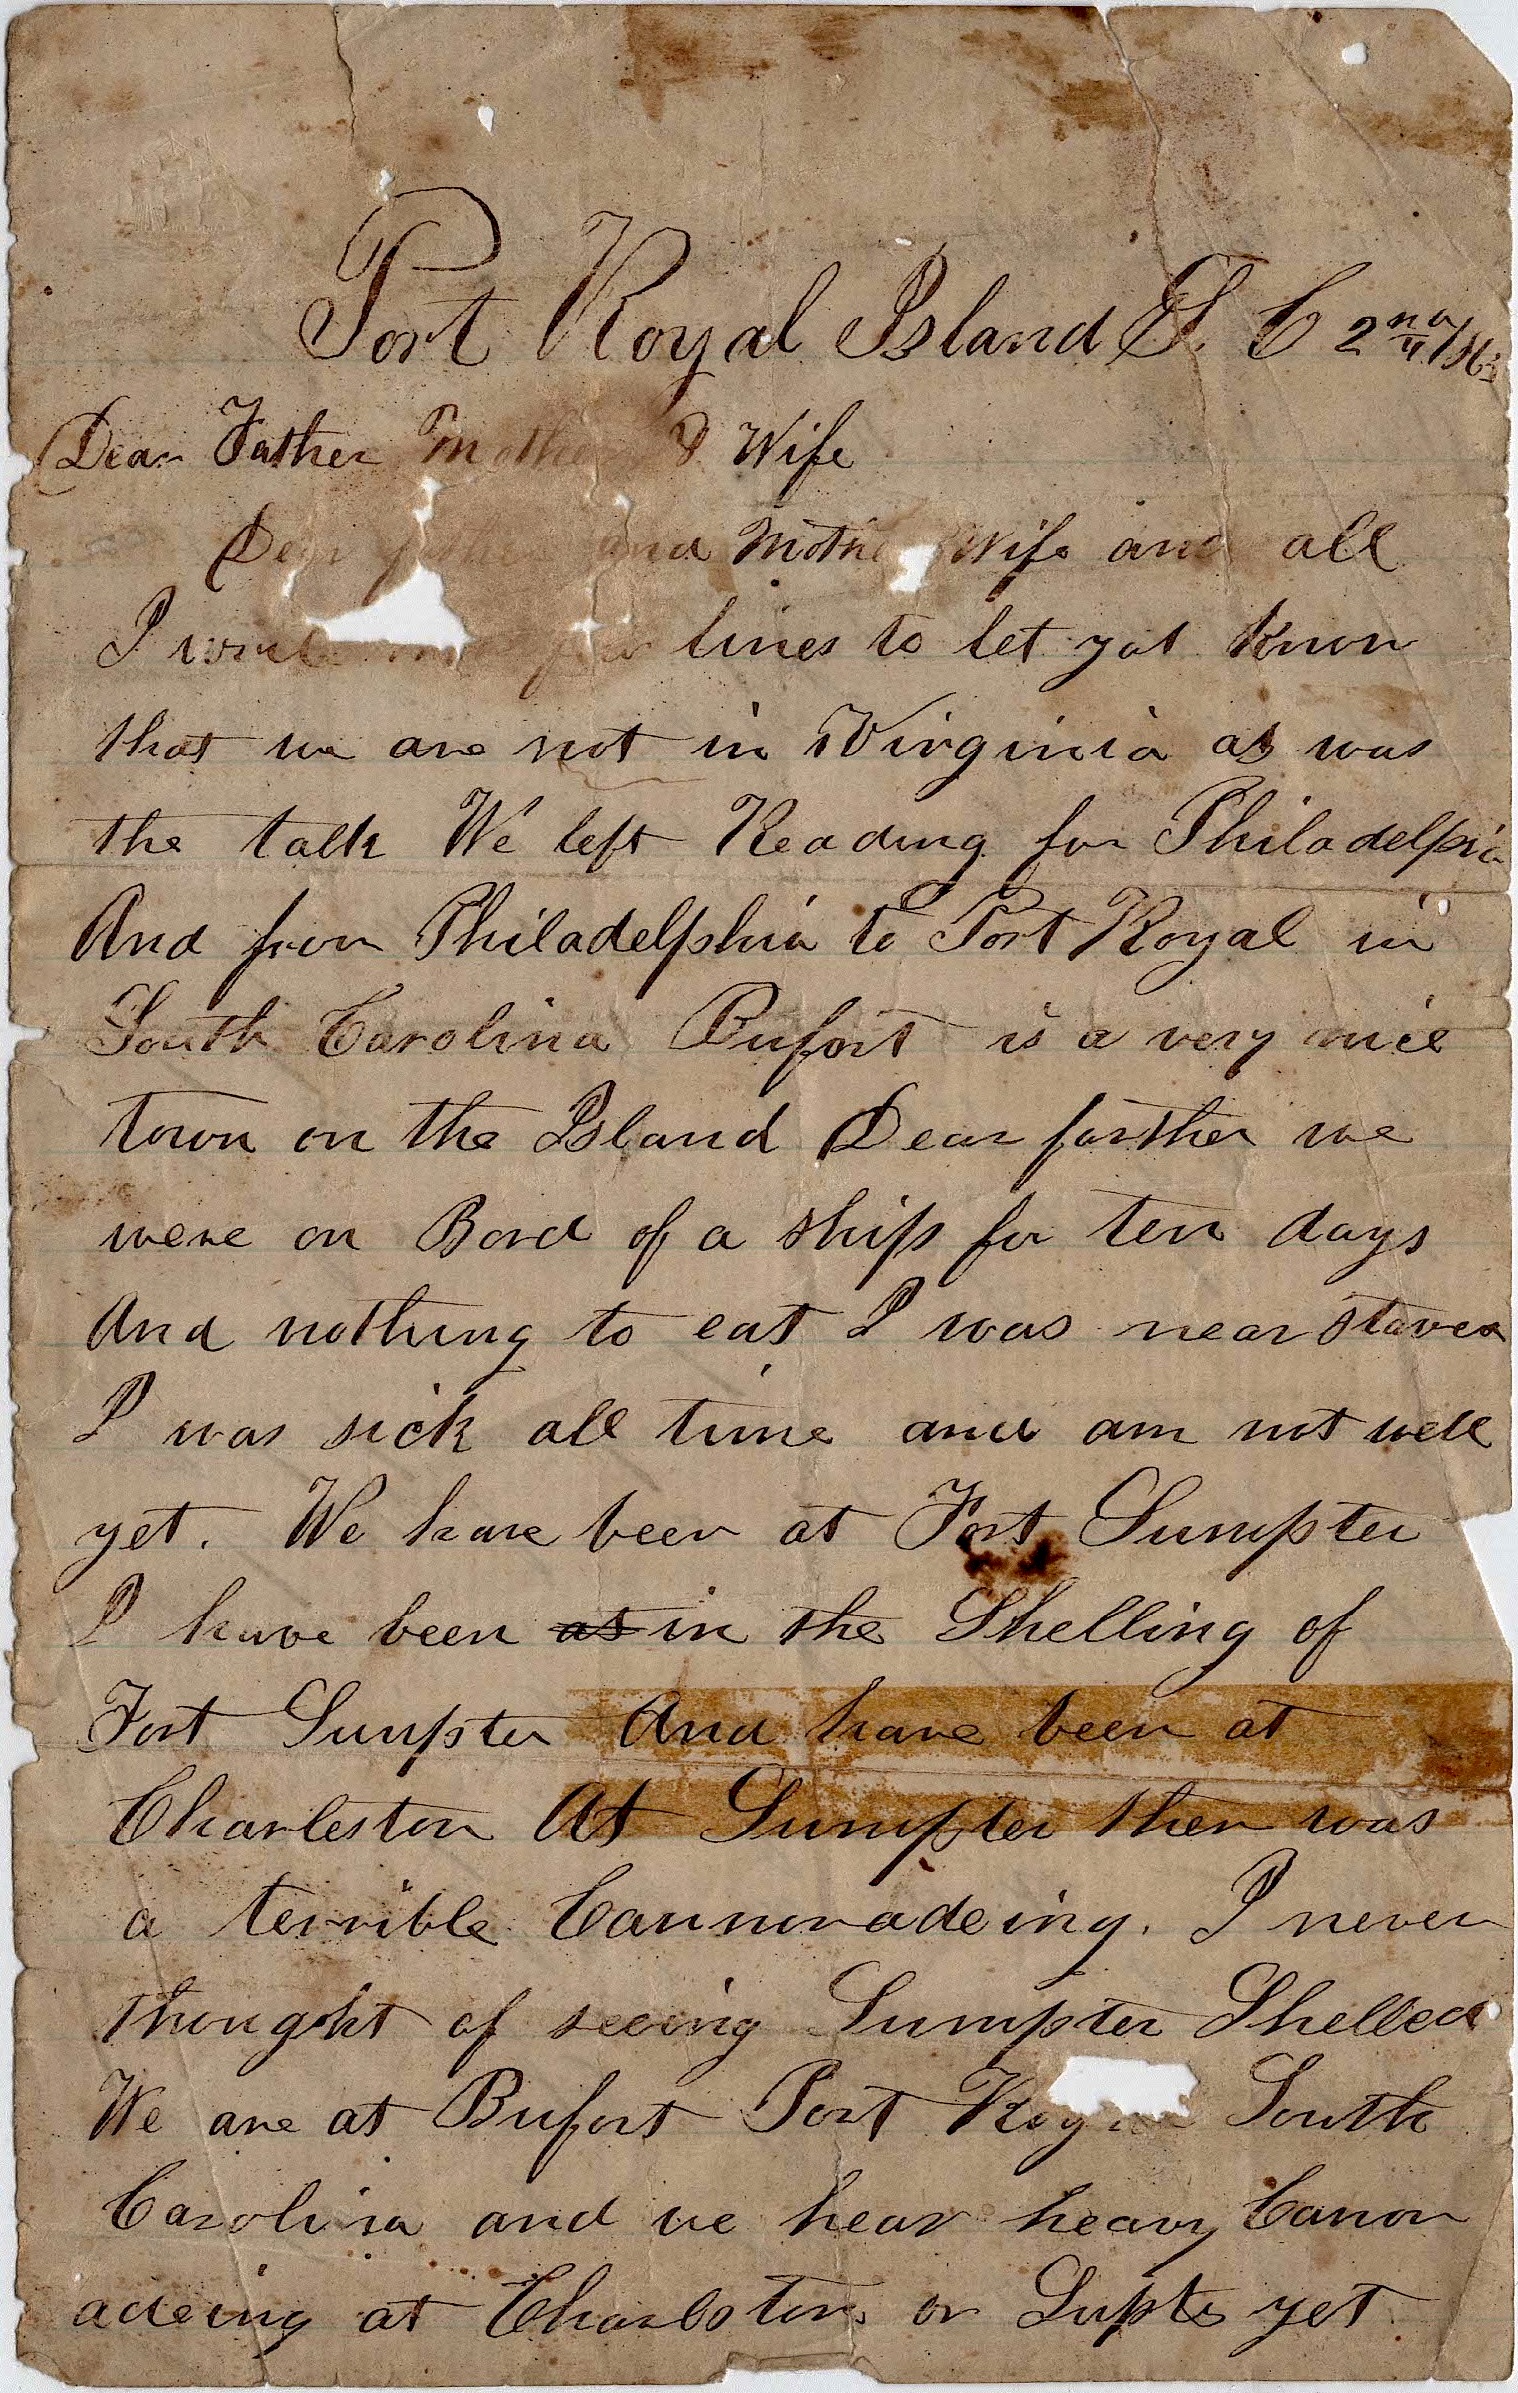 Port Royal Island S. C 2nd
Dear Father Mother & Wife
Dear father and Mother Wife and all
I lines to let yot know
that we are not in Virginia as was
the talk We left Reading for Philadelpia
And from Philadelphia to Port Royal in
South Carolina Bufort is a very nice
town on the Island Dear farther we
were on Bord of a ship for ten days
And nothing to eat I was near staved
I was sick all time and am not well
yet. We have been at Fort Sumpter
I have been as in the Shelling of
Fort Sumpter And have been at
Charleston At Sumpter ther was
a terrible Cannonadeing. I never
thought of seeing Sumpter Shelled
We are at Bufort Port South
Carolina and we hear heavy Canon
adeing at Charlston or Supte yet